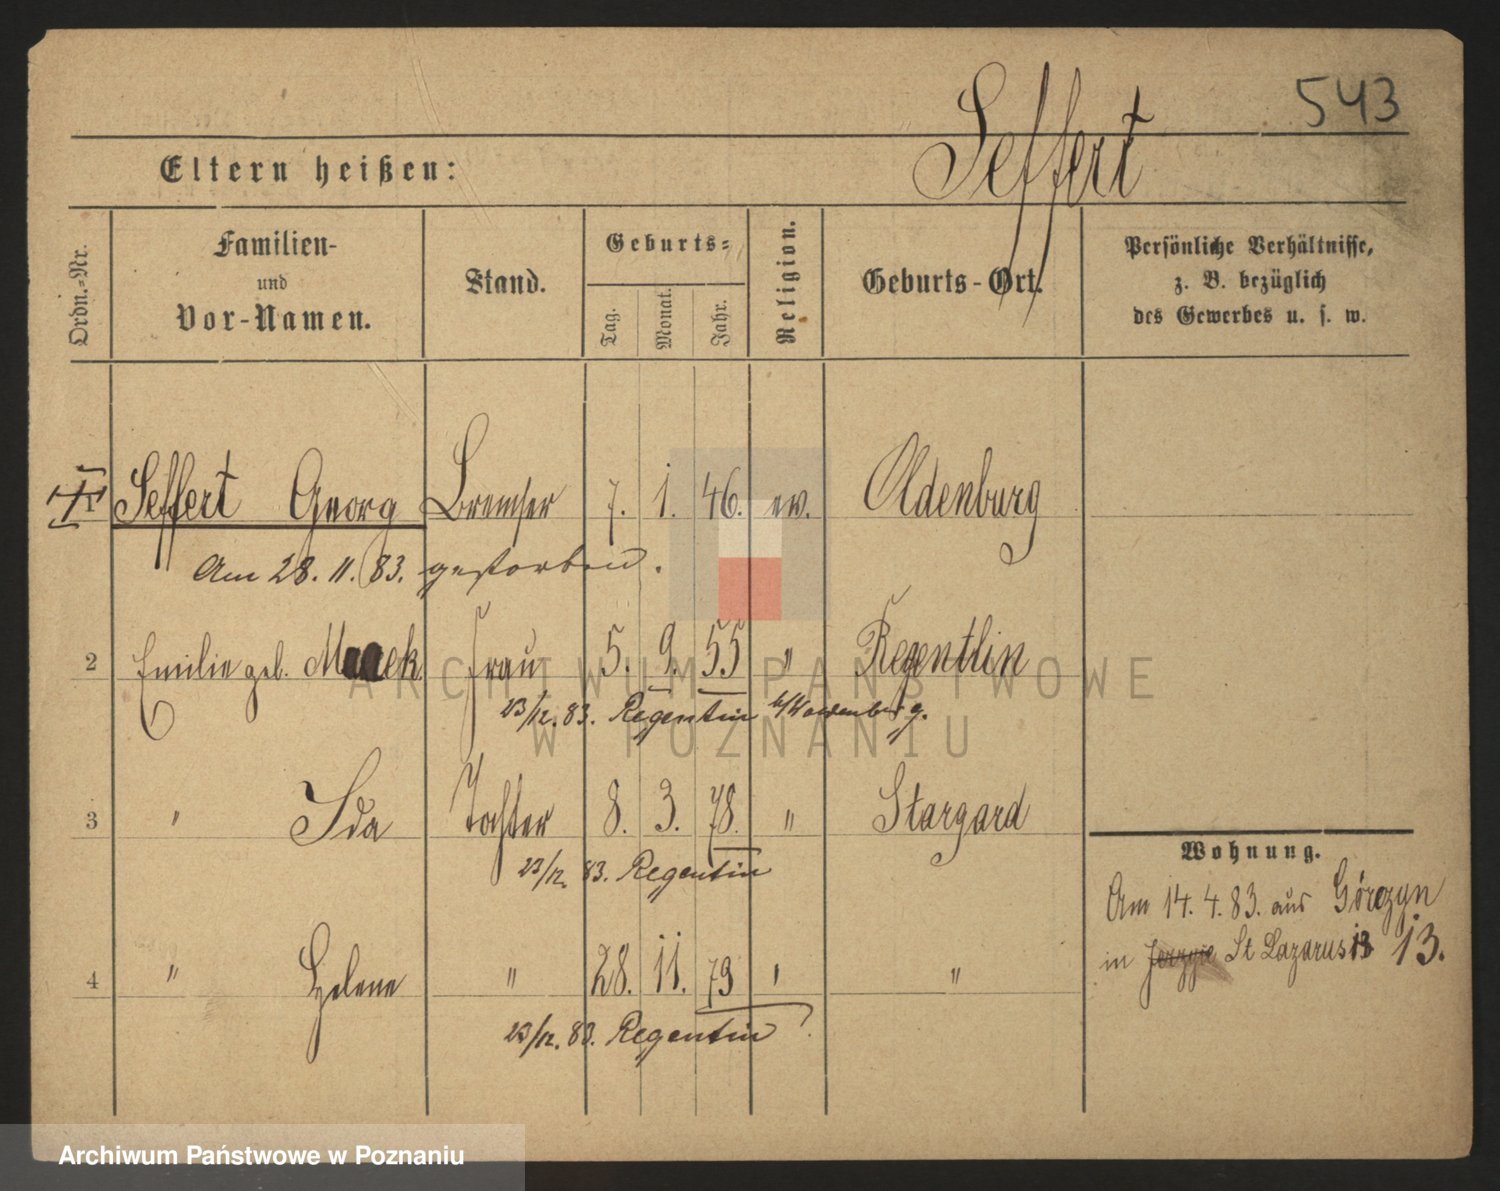 543
Seffert
Eltern heißen:
Ordn.-Nr.
Familien-
und
Vor-Namen.
Stand.
Geburts-
Tag.
Monat.
Jahr.
Religion.
Geburts-Ort.
Persönliche Verhältnisse,
z. B. bezüglich
des Gewerbes u. s. w.
Seffert Georg Bremser 7. 1. 46. ev. Oldenburg
Am 28. 11. 83. gestorben.
2 Emilie geb. Frau 5. 9. 55 " Regenthin
23/12. 83. Regentin b/Woldenberg.
3 " Ida Tochter 8. 3. 78. " Stargard
23/12. 83. Regentin
4 " Helene " 28. 11. 79 " "
23/12. 83. Regentin
Wohnung.
Am 14. 4. 83. aus Górczyn
in Jerzyce St Lazarus 13 13.
ARCHIWUM PAŃSTWOWE
W POZNANIU
Archiwum Państwowe w Poznaniu